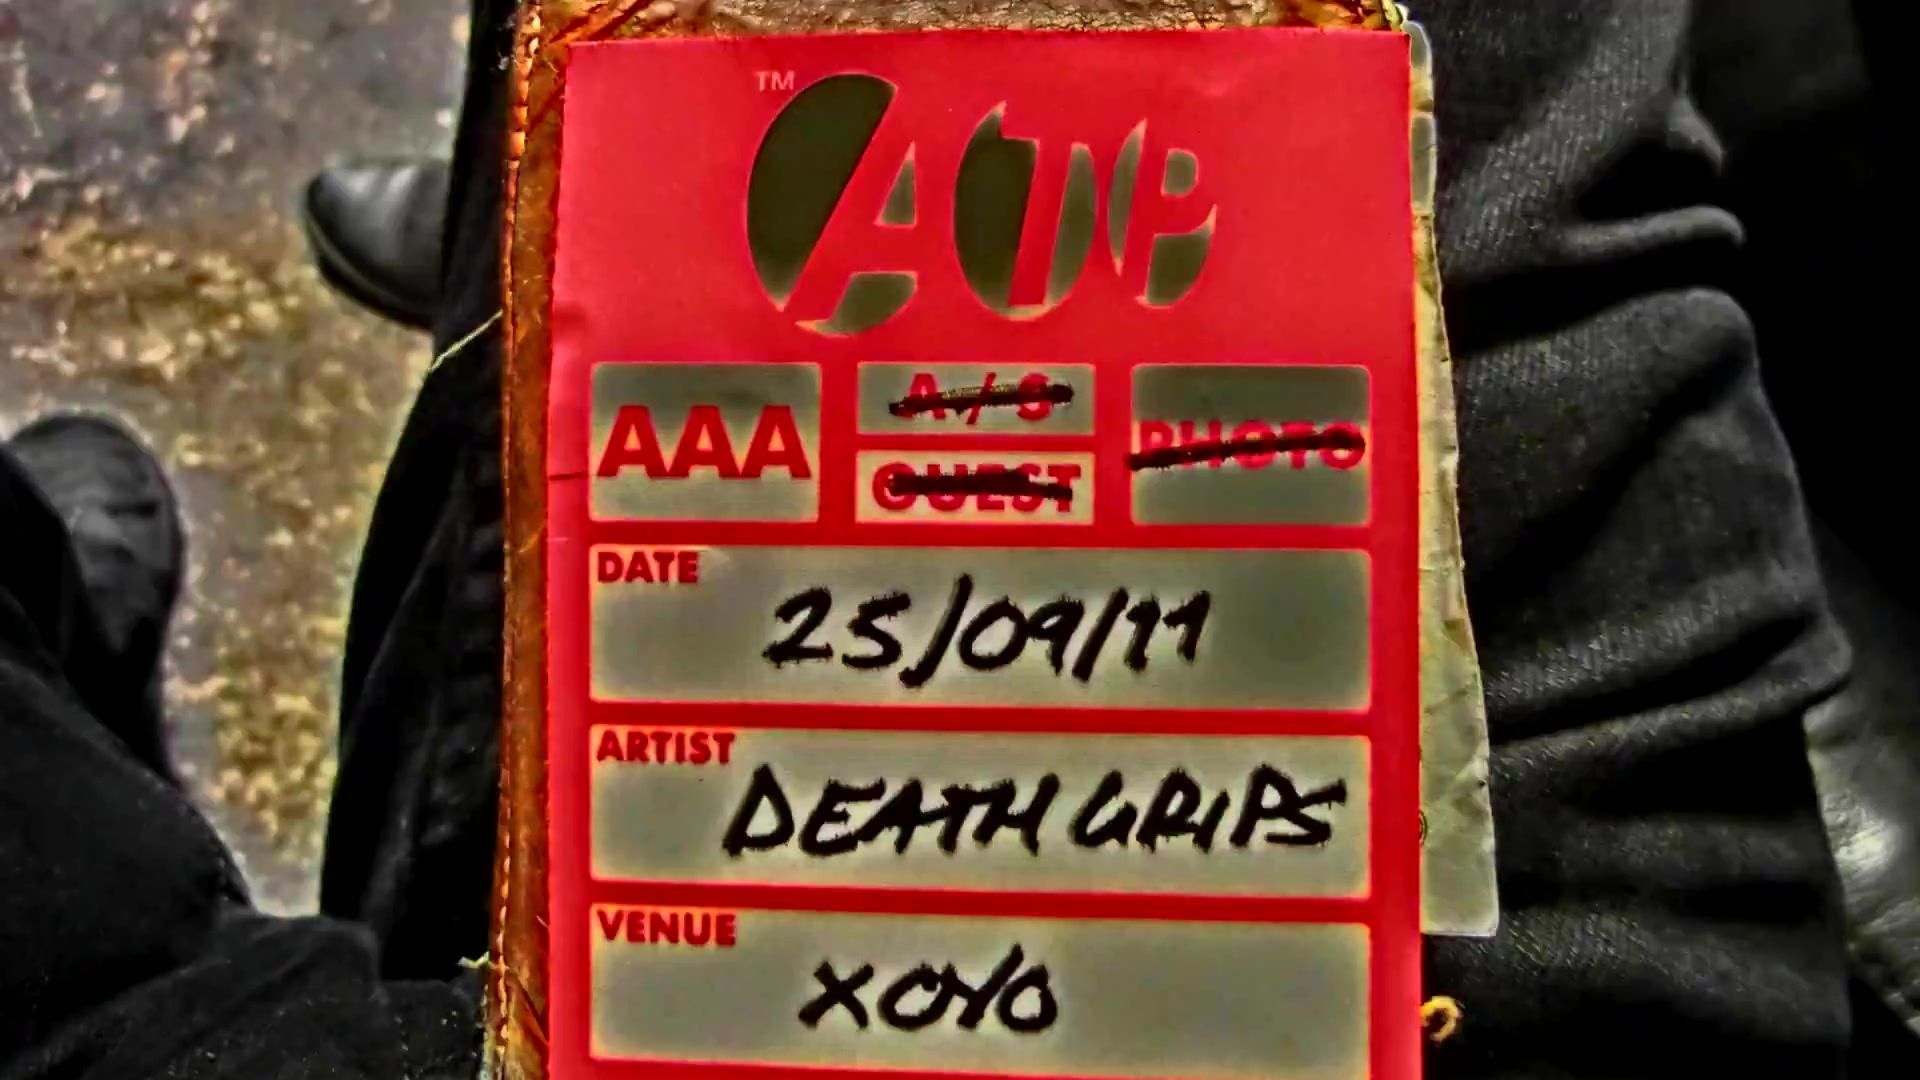 TM
ATP
AAA
A/S
GUEST
PHOTO
DATE
25/09/11
ARTIST
DEATH GRIPS
VENUE
XOYO